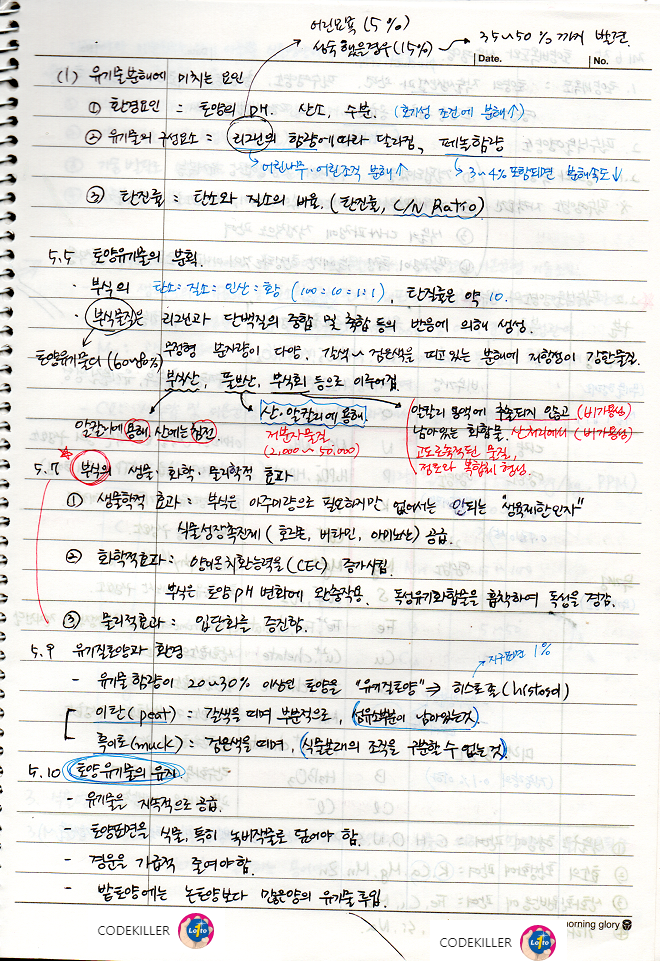 어린묘목 (5%)
성숙했을경우(15%) → 35~50%까지 발견.
Date.
No.
(1) 유기물분해에 미치는 요인
① 환경요인 : 토양의 pH. 산소, 수분. (호기성 조건에 분해↑)
② 유기물의 구성요소 : 리그닌의 함량에따라 달라짐, 페놀함량
→어린나무·어린조직 분해↑
→3~4% 포함되면 분해속도↓
③ 탄질률 : 탄소와 질소의 비율. (탄질률, C/N Ratio)
5.5 토양유기물의 분획.
· 부식의 탄소:질소:인산:황 (100:10:1:1), 탄질률은 약 10.
· 부식물질은 리그닌과 단백질의 중합 및 축합 등의 반응에 의해 생성.
토양유기물의 (60~80%)
무정형 분자량이 다양, 갈색~검은색을 띠고 있는 분해에 저항성이 강한물질.
부식산, 풀브산, 부식회 등으로 이루어짐
알칼리에 용해, 산에는침전
산·알칼리에 용해
저분자물질
(2,000~50,000)
알칼리 용액에 추출되지 않고 (비가용성)
남아있는 화합물. 산처리에서 (비가용성)
고도로축적된 물질,
점토와 복합체 형성.
5.7 부식의 생물·화학·물리학적 효과
① 생물학적 효과 : 부식은 아주미량으로 필요하지만 없어서는 안되는 "생육제한인자"
식물성장촉진제 (호르몬, 비타민, 아미노산) 공급.
② 화학적효과 : 양이온치환능력을(CEC) 증가시킴.
부식은 토양 pH 변화에 완충작용. 독성유기화합물을 흡착하여 독성을 경감.
③ 물리적효과 : 입단화를 증진함.
5.9 유기질토양과 환경
지구표면 1%
- 유기물 함량이 20~30% 이상인 토양을 "유기질토양" ⇒ 히스토졸(histosol)
이탄(peat) : 갈색을 띠며 부분적으로, (섬유소부분이 남아있는것)
흑이토(muck) : 검은색을 띠며, (식물본래의 조직을 구분할 수 없는것)
5.10 토양유기물의 유지
- 유기물을 지속적으로 공급.
- 토양표면을 식물, 특히 녹비작물로 덮어야 함.
- 경운을 가급적 줄여야함.
- 밭토양에는 논토양보다 많은양의 유기물 투입.
morning glory
CODEKILLER Lofto
CODEKILLER Lofto